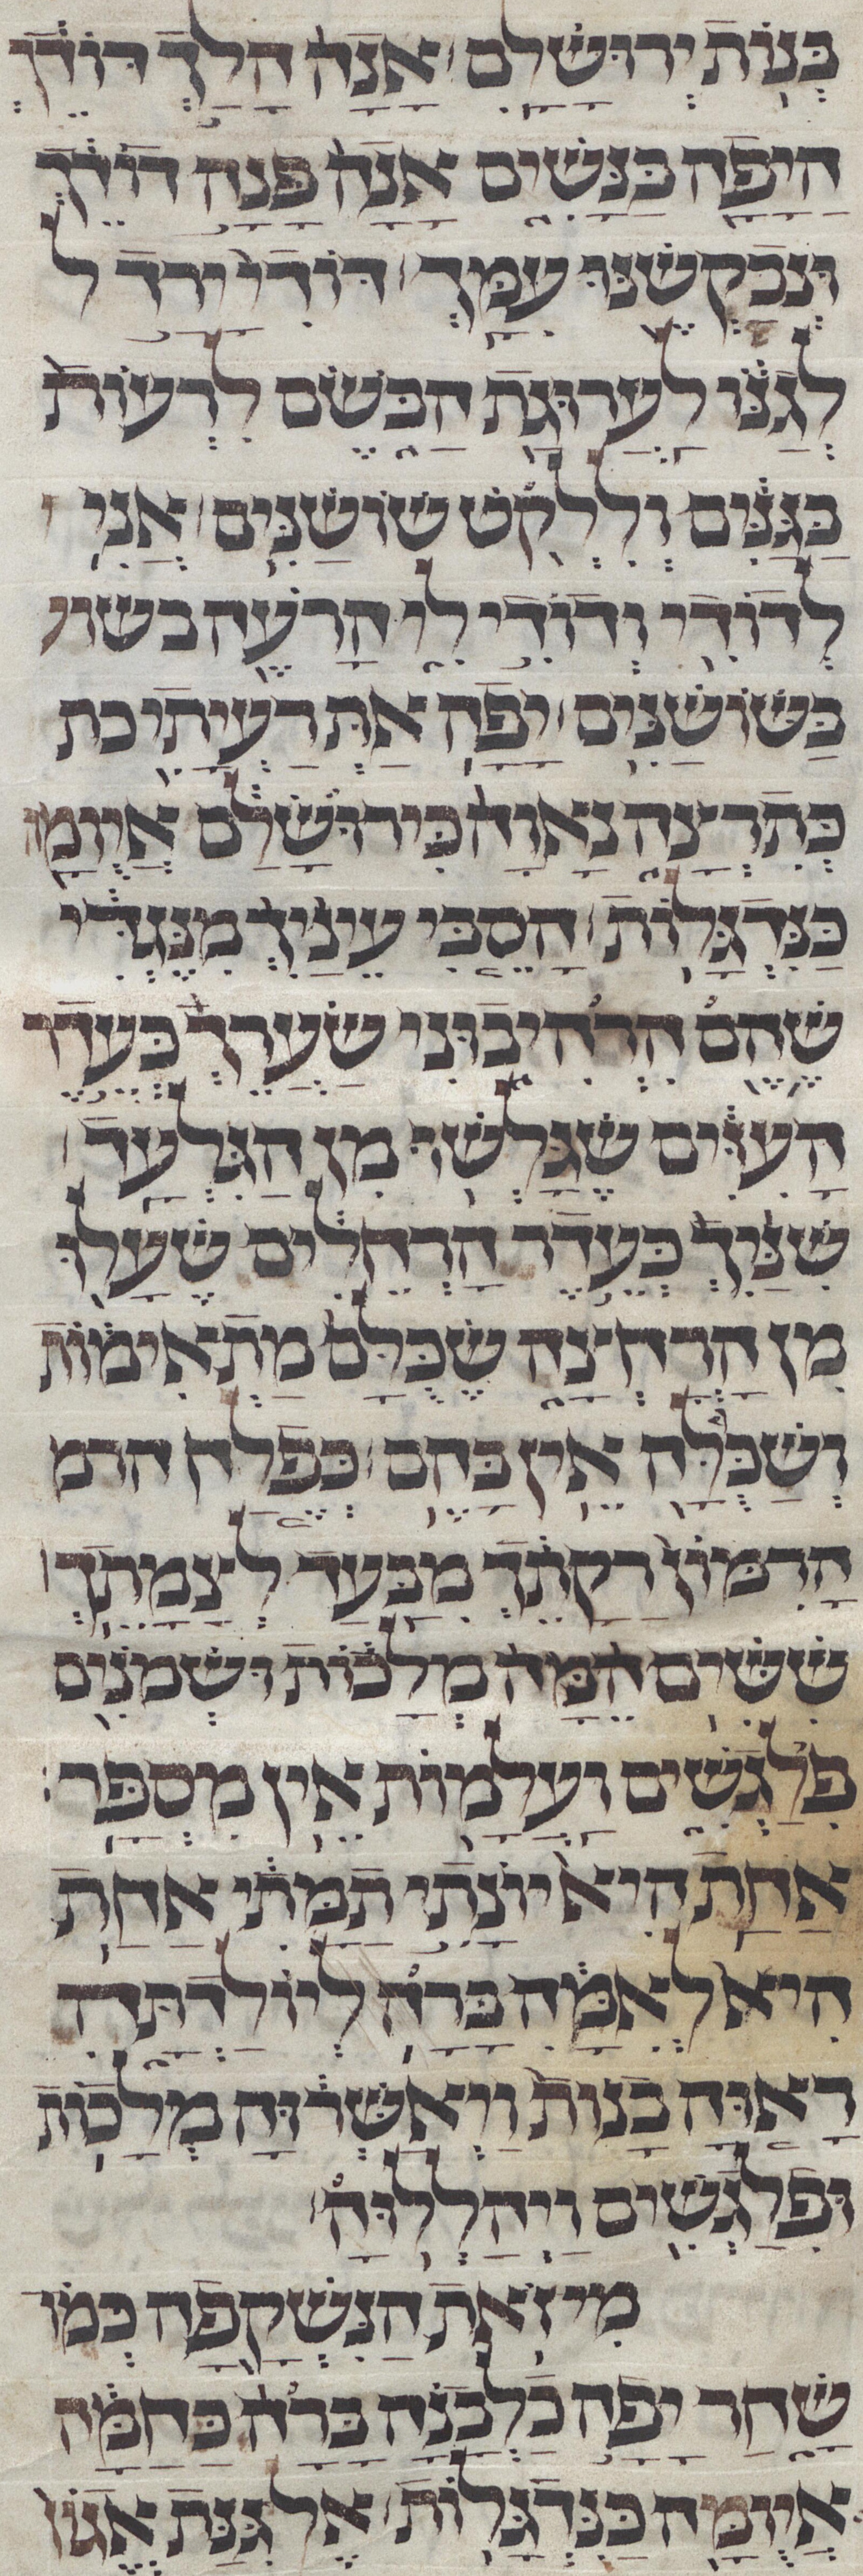 בְּנוֹת יְרוּשָׁלִָם׃ אָנָה הָלַךְ דּוֹדֵךְ
הַיָּפָה בַּנָּשִׁים אָנָה פָּנָה דוֹדֵךְ
וּנְבַקְשֶׁנּוּ עִמָּךְ׃ דּוֹדִי יָרַד ל
לְגַנּוֹ לַעֲרוּגַת הַבֹּשֶׂם לִרְעוֹת
בַּגַּנִּים וְלִלְקֹט שׁוֹשַׁנִּים׃ אֲנִי
לְדוֹדִי וְדוֹדִי לִי הָרֹעֶה בשוע
בַּשּׁוֹשַׁנִּים׃ יָפָה אַתְּ רַעְיָתִי כת
כְּתִרְצָה נָאוָה כִּירוּשָׁלִָם אֲיֻומָּה
כַּנִּדְגָּלוֹת׃ הָסֵבִּי עֵינַיִךְ מִנֶּגְדִּי
שֶׁהֵם הִרְהִיבוּנִי שַׂעְרֵךְ כְּעֵדֶר
הָעִזִּים שֶׁגָּלְשׁוּ מִן הַגִּלְעָד׃
שִׁנַּיִךְ כְּעֵדֶר הָרְחֵלִים שֶׁעָלוּ
מִן הָרַחְצָה שֶׁכֻּלָּם מַתְאִימוֹת
וְשַׁכֻּלָה אֵין בָּהֶם׃ כְּפֶלַח הרמ
הָרִמּוֹן רַקָּתֵךְ מִבַּעַד לְצַמָּתֵךְ׃
שִׁשִּׁים הֵמָּה מְלָכוֹת וּשְׁמֹנִים
פִּלַגְשִׁים וַעֲלָמוֹת אֵין מִסְפָּר׃
אַחַת הִיא יוֹנָתִי תַמָּתִי אַחַת
הִיא לְאִמָּהּ בָּרָה הִיא לְיוֹלַדְתָּהּ
רָאוּהָ בָנוֹת וַיְאַשְּׁרוּהָ מְלָכוֹת
וּפִלַגְשִׁים וַיְהַלְלוּהָ׃
מִי זֹאת הַנִּשְׁקָפָה כְּמוֹ
שָׁחַר יָפָה כַלְּבָנָה בָּרָה כַּחַמָּה
אֲיֻומָּה כַּנִּדְגָּלוֹת׃ אֶל גִּנַּת אֱגוֹז